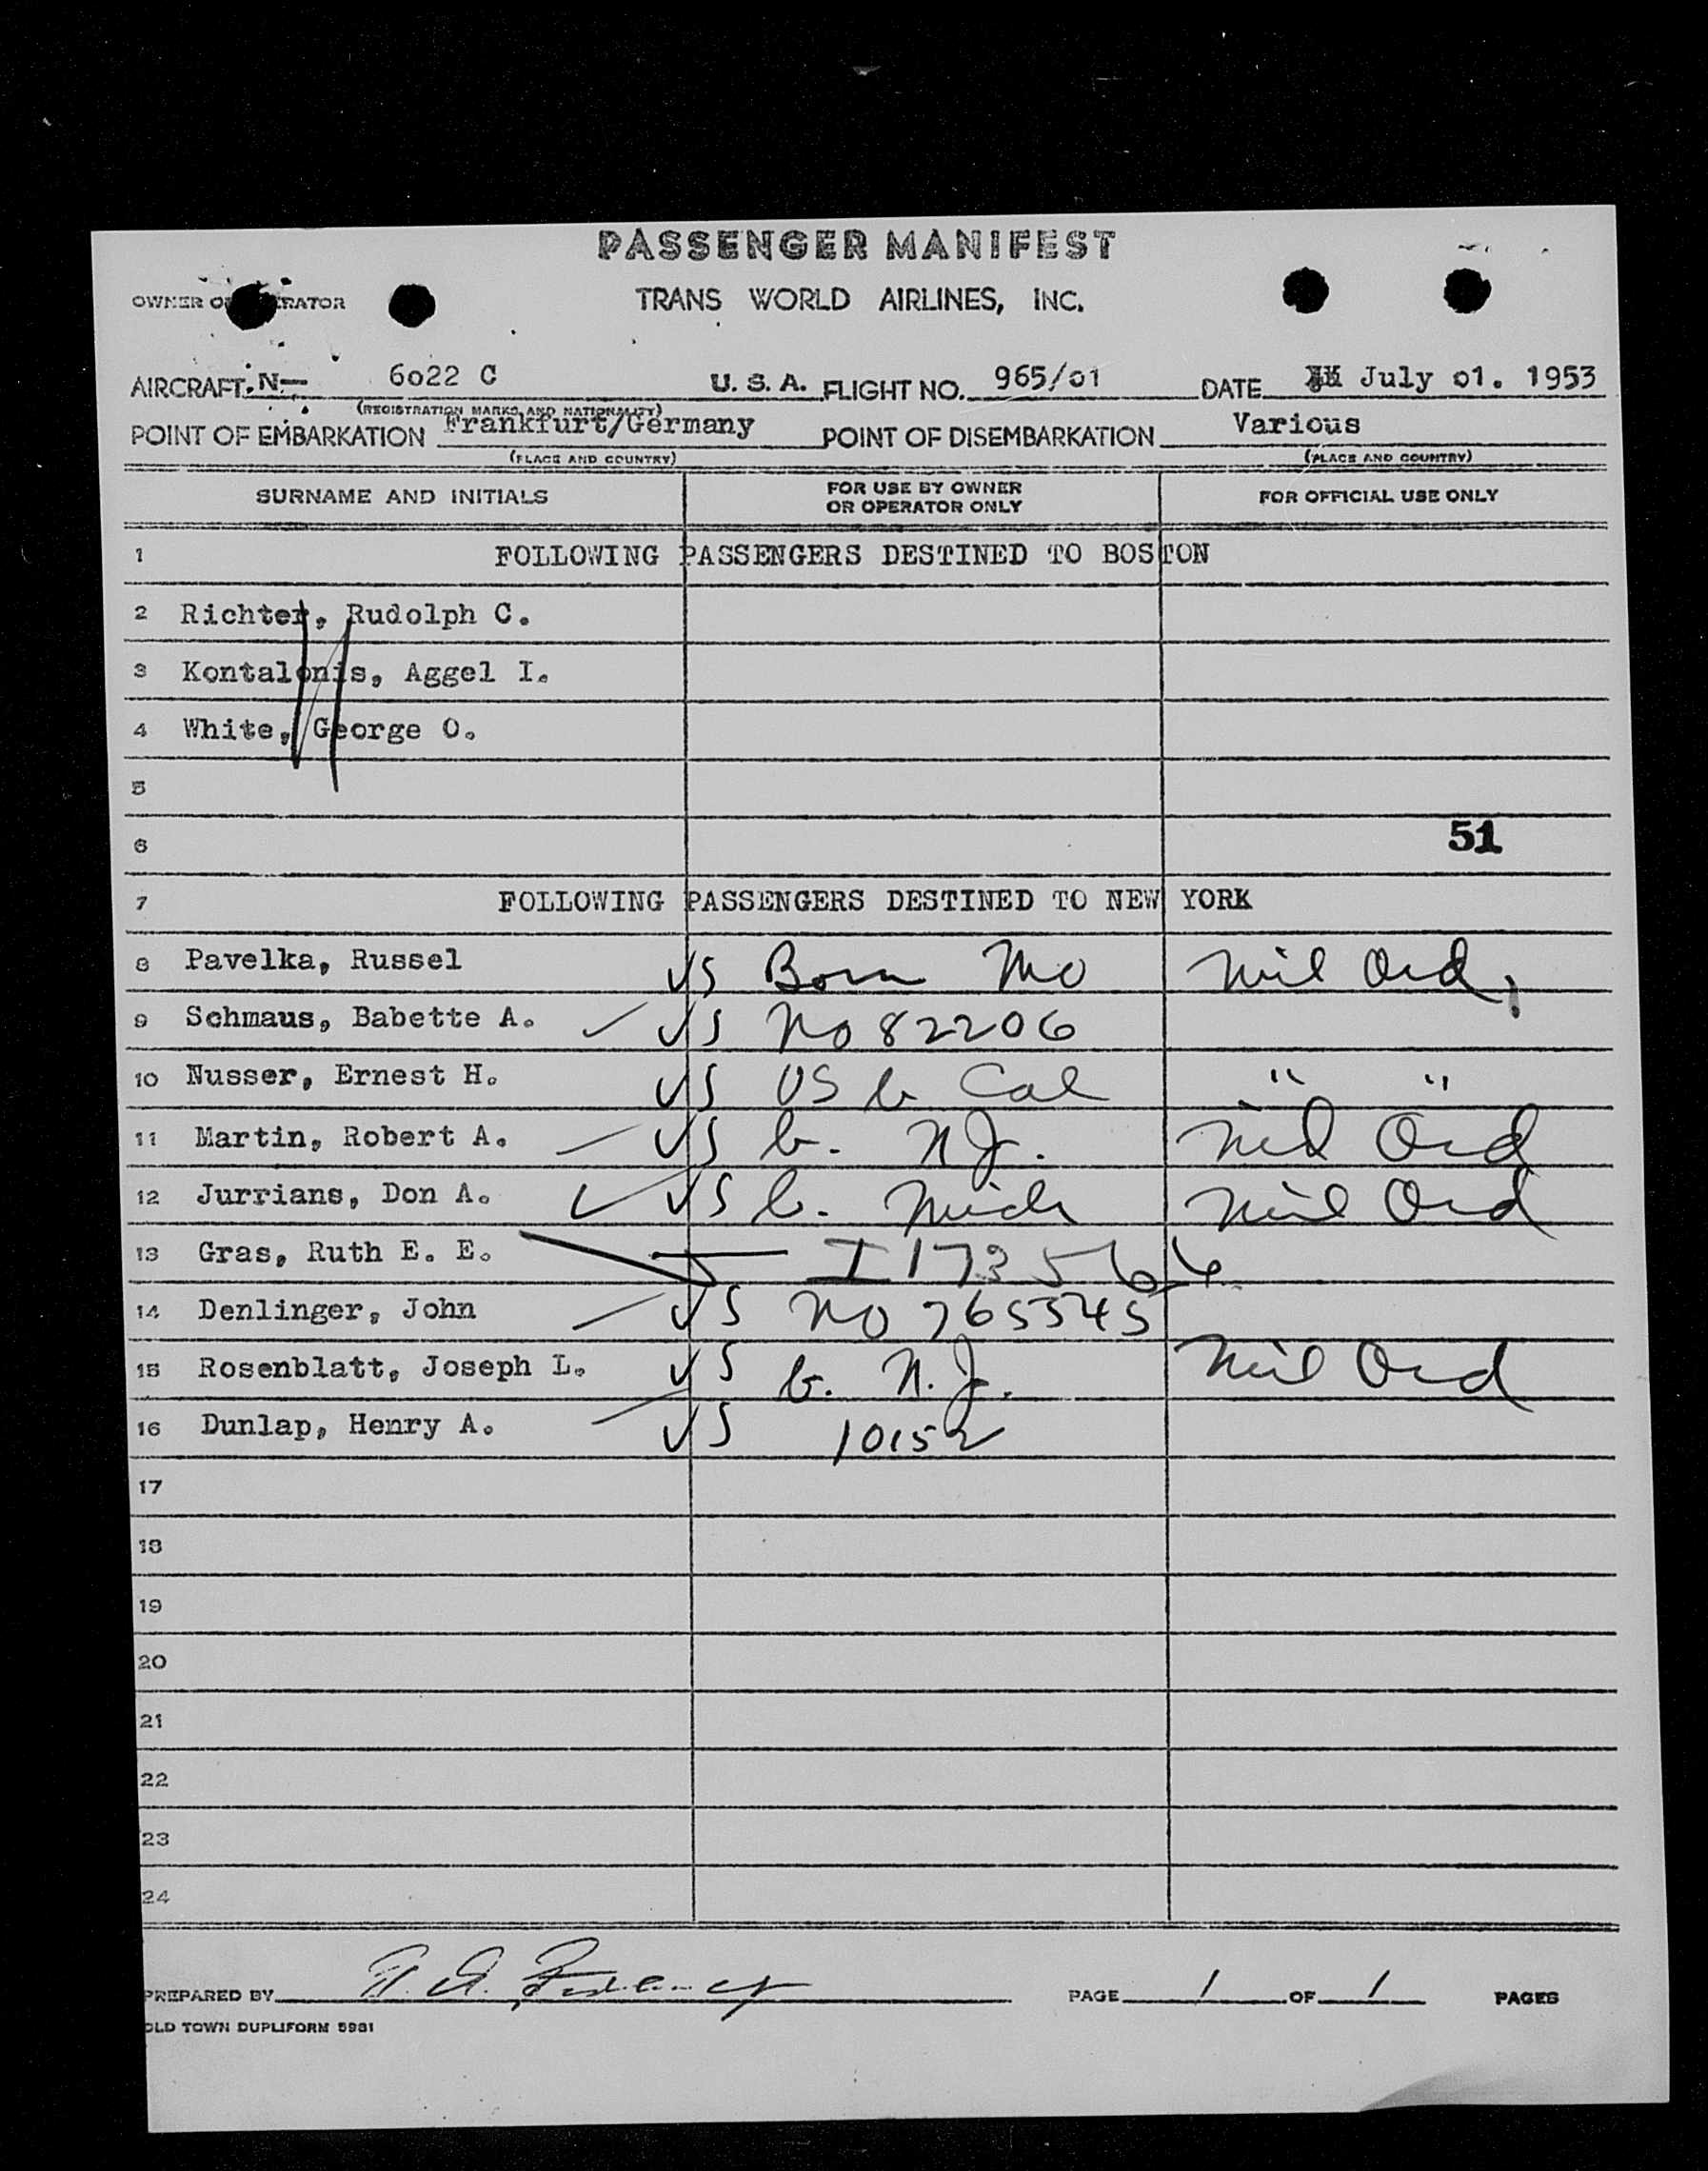 PASSENGER MANIFEST
OWNER O ERATOR
TRANS WORLD AIRLINES, INC.
AIRCRAFT. N— 6022 C U. S. A. FLIGHT NO. 965/01 DATE July 01. 1953
(REGISTRATION MARKS AND NATIONALITY)
POINT OF EMBARKATION Frankfurt/Germany POINT OF DISEMBARKATION Various
(PLACE AND COUNTRY) (PLACE AND COUNTRY)
SURNAME AND INITIALS FOR USE BY OWNER OR OPERATOR ONLY FOR OFFICIAL USE ONLY
1 FOLLOWING PASSENGERS DESTINED TO BOSTON
2 Richter, Rudolph C.
3 Kontalonis, Aggel I.
4 White, George O.
5
6 51
7 FOLLOWING PASSENGERS DESTINED TO NEW YORK
8 Pavelka, Russel US Born Mo Mil Ord.
9 Schmaus, Babette A. US No 82206
10 Nusser, Ernest H. US US b Cal " "
11 Martin, Robert A. US b. N.J. Mil Ord
12 Jurrians, Don A. US b. Mich Mil Ord
13 Gras, Ruth E. E. I 173566
14 Denlinger, John US No 765545
15 Rosenblatt, Joseph L. US b. N.J. Mil Ord
16 Dunlap, Henry A. US 10152
17
18
19
20
21
22
23
24
PREPARED BY PAGE 1 OF 1 PAGES
OLD TOWN DUPLIFORM 5981